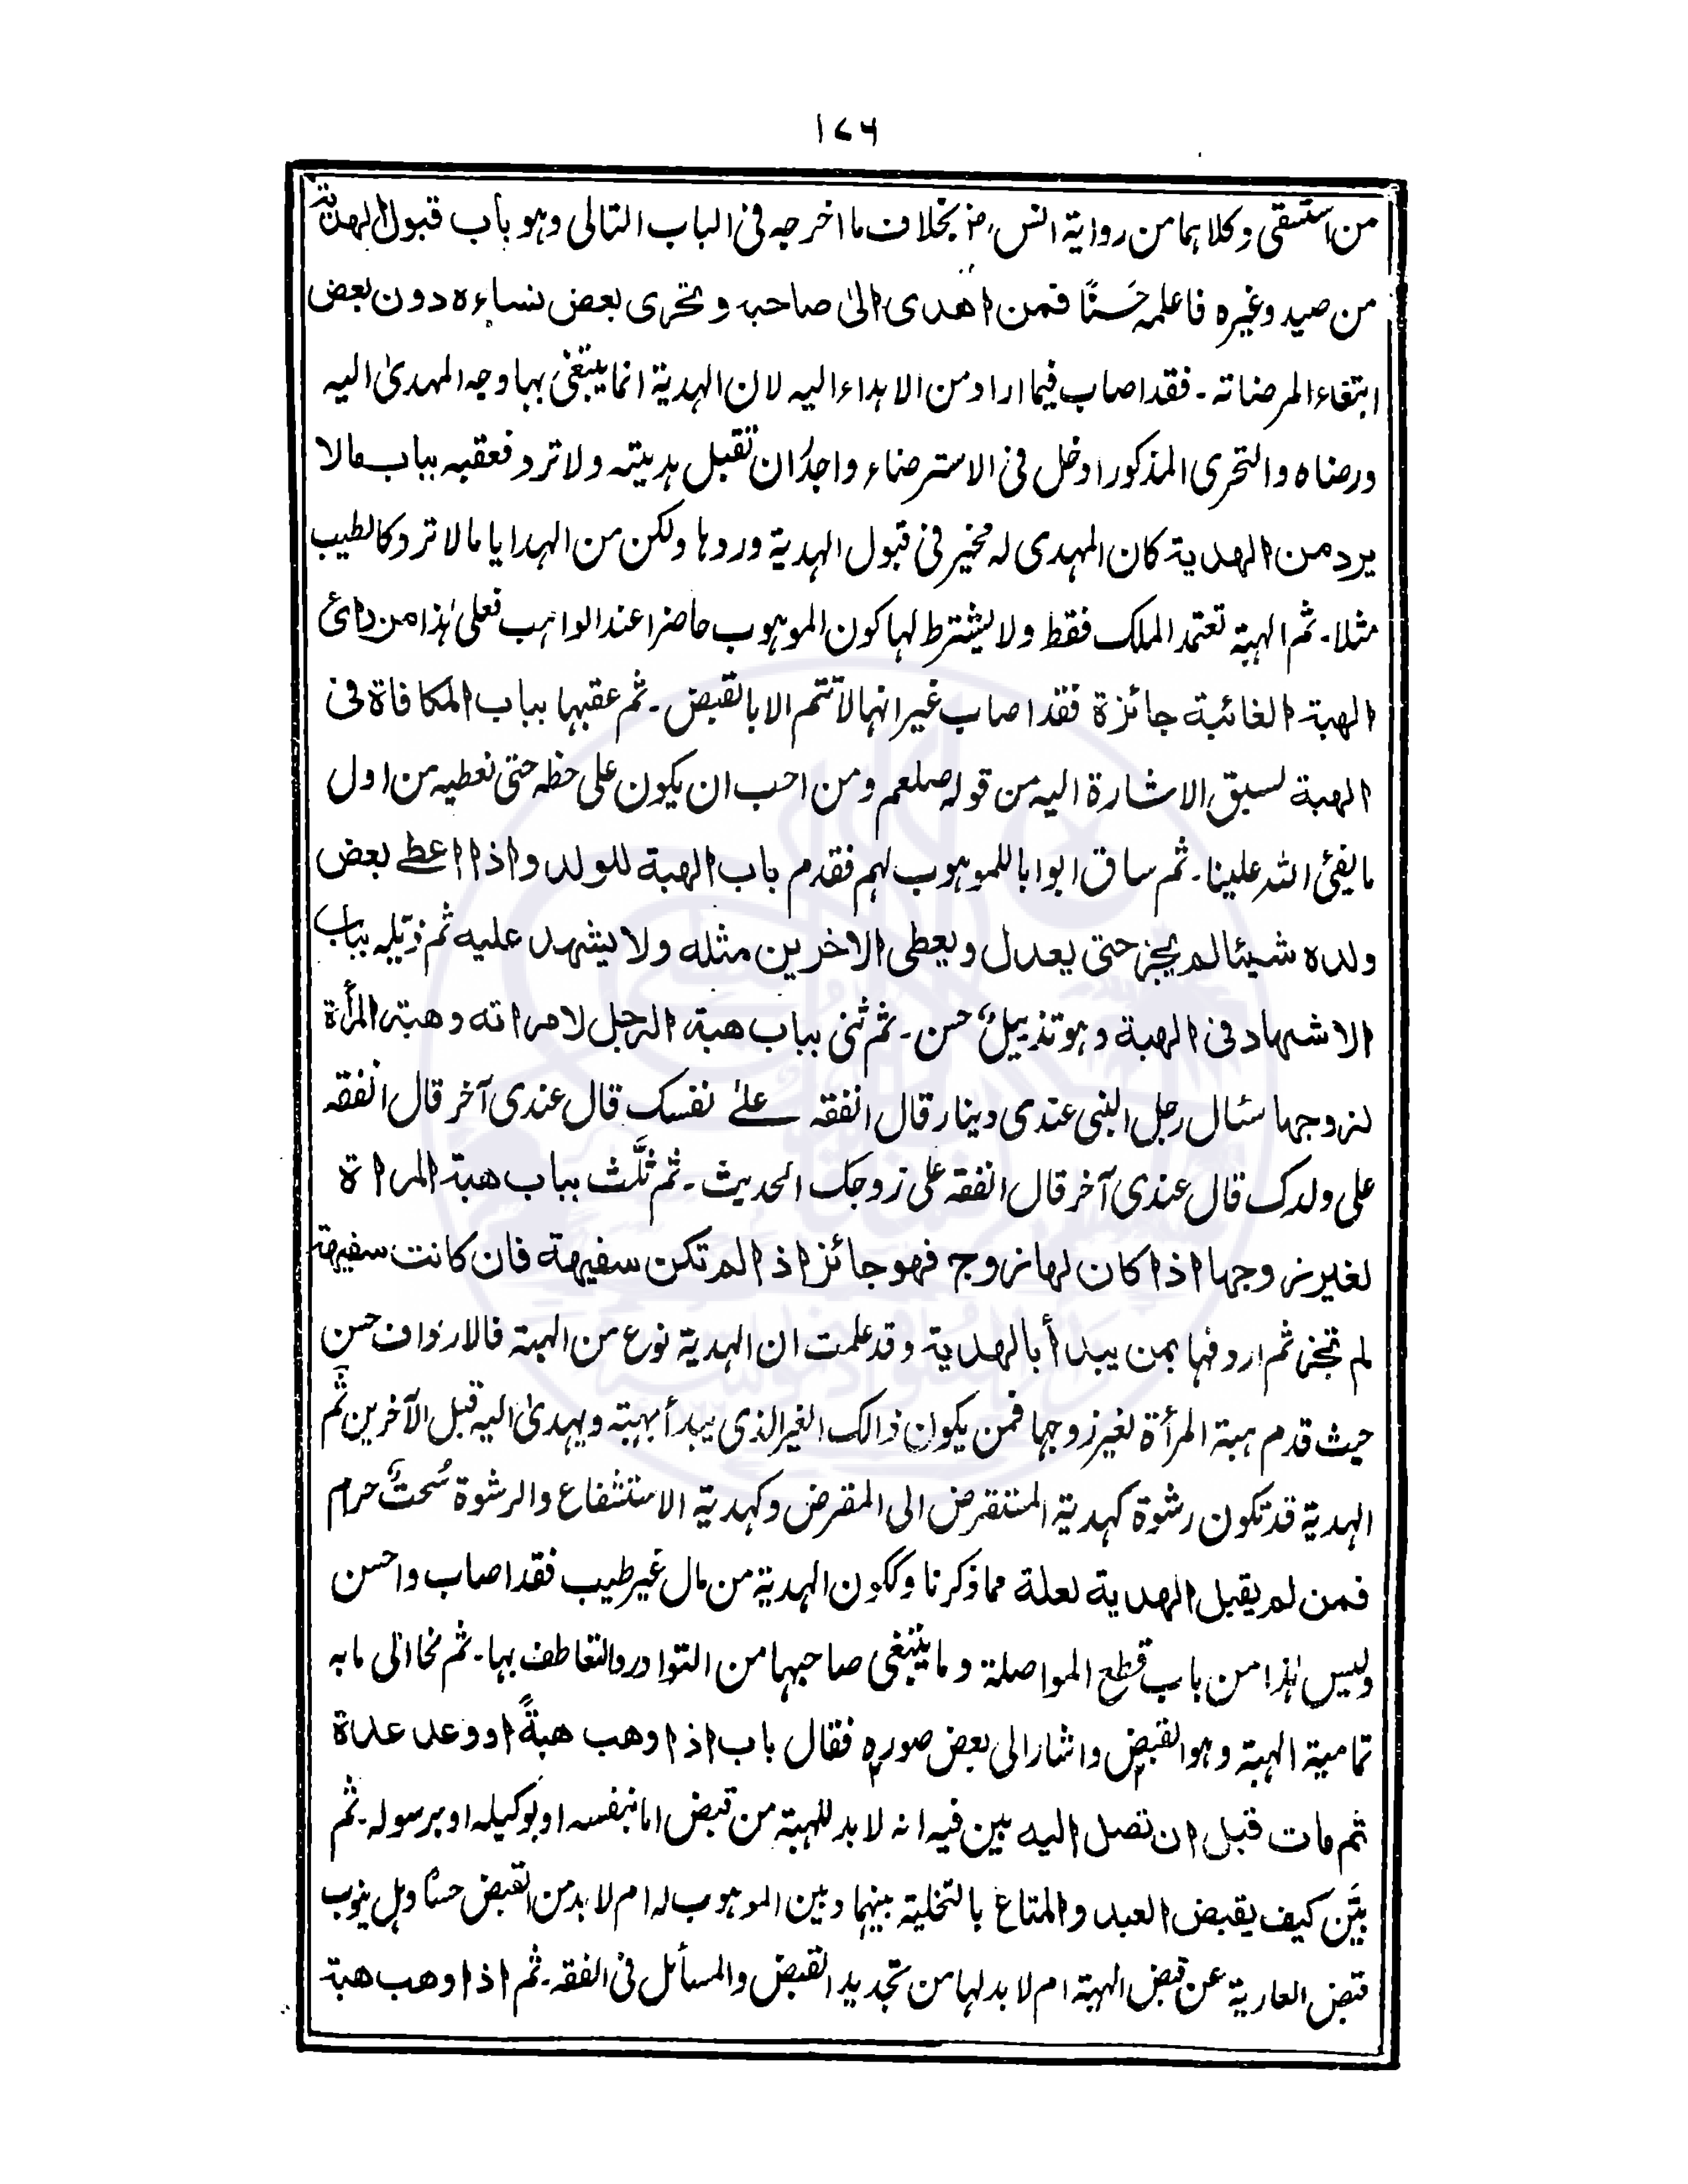 ١٧٦
من استسقى وكلاهما من رواية انس رض بخلاف ما اخرجه في الباب التالى وهو باب قبول الهدية
من صيد وغيره فاعلمه حَسَنًا فمن اهدى الىٰ صاحبه وتحرى بعض نساءه دون بعض
ابتغاء المرضاته ۔ فقد اصاب فيما اراد من الاهداء اليه لان الهدية انما يبتغى بها وجه المهدىٰ اليه
ورضاه والتحرى المذكور ادخل فى الاسترضاء واجدُ ان تقبل هديته ولا ترد فعقبه بباب مالا
يرد من الهدية كان المهدى له مخير فى قبول الهدية وردها ولكن من الهدايا مالا ترد كالطيب
مثلا ۔ ثم الهبة تعتمد الملك فقط ولا يشترط لها كون الموهوب حاضرا عند الواهب فعلى هٰذا من رائ
الهبة الغائبة جائزة فقد اصاب غير انها لا تتم الا بالقبض ۔ ثم عقبها بباب المكافاة فى
الهبة لسبق الاشارة اليه من قوله صلعم ومن احب ان يكون على حظه حتى نعطيه من اول
ما يفئ الله علينا ۔ ثم ساق ابوابا للموهوب لهم فقدم باب الهبة للولد واذا اعطے بعض
ولده شيئا لم يجز حتى يعدل ويعطى الاخرين مثله ولا يشهد عليه ثم ذيّله بباب
الاشهاد فى الهبة وهو تذييلٌ حسن ۔ ثم ثنى بباب هبة الرجل لامراته وهبة المرأة
لزوجها سئال رجل النبى عندى دينار قال انفقه علےٰ نفسك قال عندى آخر قال انفقه
على ولدك قال عندى آخر قال انفقه على زوجك الحديث ۔ ثم ثلَّث بباب هبة المراة
لغير زوجها اذا كان لها زوج فهو جائز اذا لم تكن سفيهة فان كانت سفيهة
لم تجز ثم اردفها بمن يبدأ بالهدية وقد علمت ان الهدية نوع من الهبة فالارداف حسن
حيث قدم هبة المرأة لغير زوجها فمن يكون ذالك الغير الذى يبدأ بهبته ويهدىٰ اليه قبل الآخرين ثم
الهدية قد تكون رشوة كهدية المستقرض الى المقرض وكهدية الاستشفاع والرشوة سُحتٌ حرام
فمن لم يقبل الهدية لعلة مما ذكرنا وككون الهدية من مال غير طيب فقد اصاب واحسن
وليس هٰذا من باب قطع المواصلة وما يبتغى صاحبها من التوادد والتعاطف بها ۔ ثم نحا الى مابه
تمامية الهبة وهو القبض واشار الى بعض صوره فقال باب اذا وهب هبةً او وعد عدة
ثم مات قبل ان تصل اليه بين فيه انه لا بد للهبة من قبض اما بنفسه او بوكيله او برسوله ۔ ثم
بيَّن كيف يقبض العبد والمتاع بالتخلية بينهما وبين الموهوب له ام لا بد من القبض حسًا وهل ينوب
قبض العارية عن قبض الهبة ام لا بد لها من تجديد القبض والمسائل فى الفقه ۔ ثم اذا وهب هبة